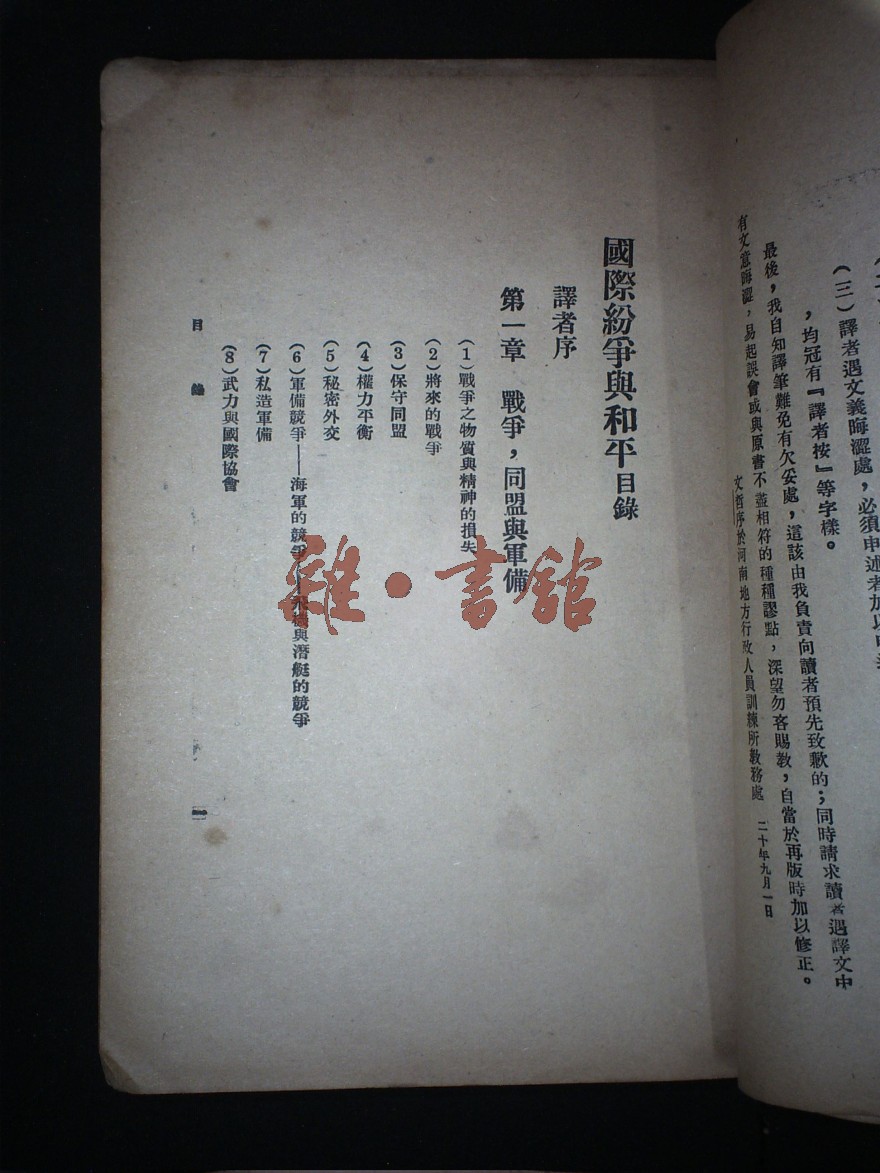 （三）譯者遇文義晦澀處，必須申述者加以
，均冠有『譯者按』等字樣。
最後，我自知譯筆難免有欠妥處，這該由我負責向讀者預先致歉的；同時請求讀者遇譯文中
有文意晦澀，易起誤會或與原書不盡相符的種種謬點，深望勿吝賜教，自當於再版時加以修正。
文哲序於河南地方行政人員訓練所教務處 二十年九月一日
國際紛爭與和平目錄
譯者序
第一章 戰爭，同盟與軍備
（1）戰爭之物質與精神的損失
（2）將來的戰爭
（3）保守同盟
（4）權力平衡
（5）秘密外交
（6）軍備競爭——海軍的競爭——飛機與潛艇的競爭
（7）私造軍備
（8）武力與國際協會
目錄
一
雜·書館